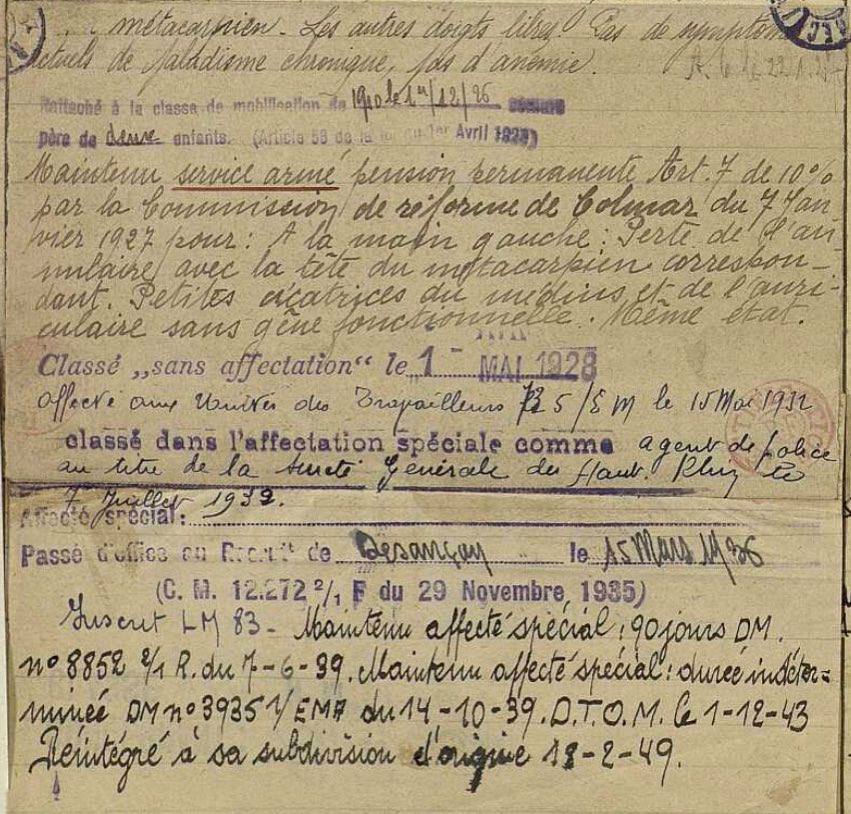 métacarpien. Les autres doigts libres. Pas de symptômes
actuels de paludisme chronique, pas d'anémie.
Rattaché à la classe de mobilisation de 1910 le 1er/12/26 comme
père de deux enfants. (Article 58 de la loi du 1er Avril 1923)
Maintenu service armé pension permanente Art. 7 de 10%
par la Commission de réforme de Colmar du 7 Jan-
vier 1927 pour : A la main gauche : Perte de l'an-
nulaire avec la tête du métacarpien correspon-
dant. Petites cicatrices du médius et de l'auri-
culaire sans gêne fonctionnelle. Même état.
Classé „sans affectation“ le 1 - MAI 1928
affecté aux Unités des Travailleurs 5/EM le 15 Mai 1932
classé dans l'affectation spéciale comme agent de police
au titre de la Sureté Générale du Haut. Rhin le
7 Juillet 1932.
Affecté spécial :
Passé d'office au Recrut de Besançon le 15 Mars 1936
(C. M. 12.272 2/1 F du 29 Novembre 1935)
Inscrit LM 83 - Maintenu affecté spécial : 90 jours DM.
n° 8852 2/1 R. du 7-6-39. Maintenu affecté spécial : durée indéter=
minée DM n° 3935 1/EMA du 14-10-39. D.T.O.M. le 1-12-43
Réintégré à sa subdivision d'origine 18-2-49.